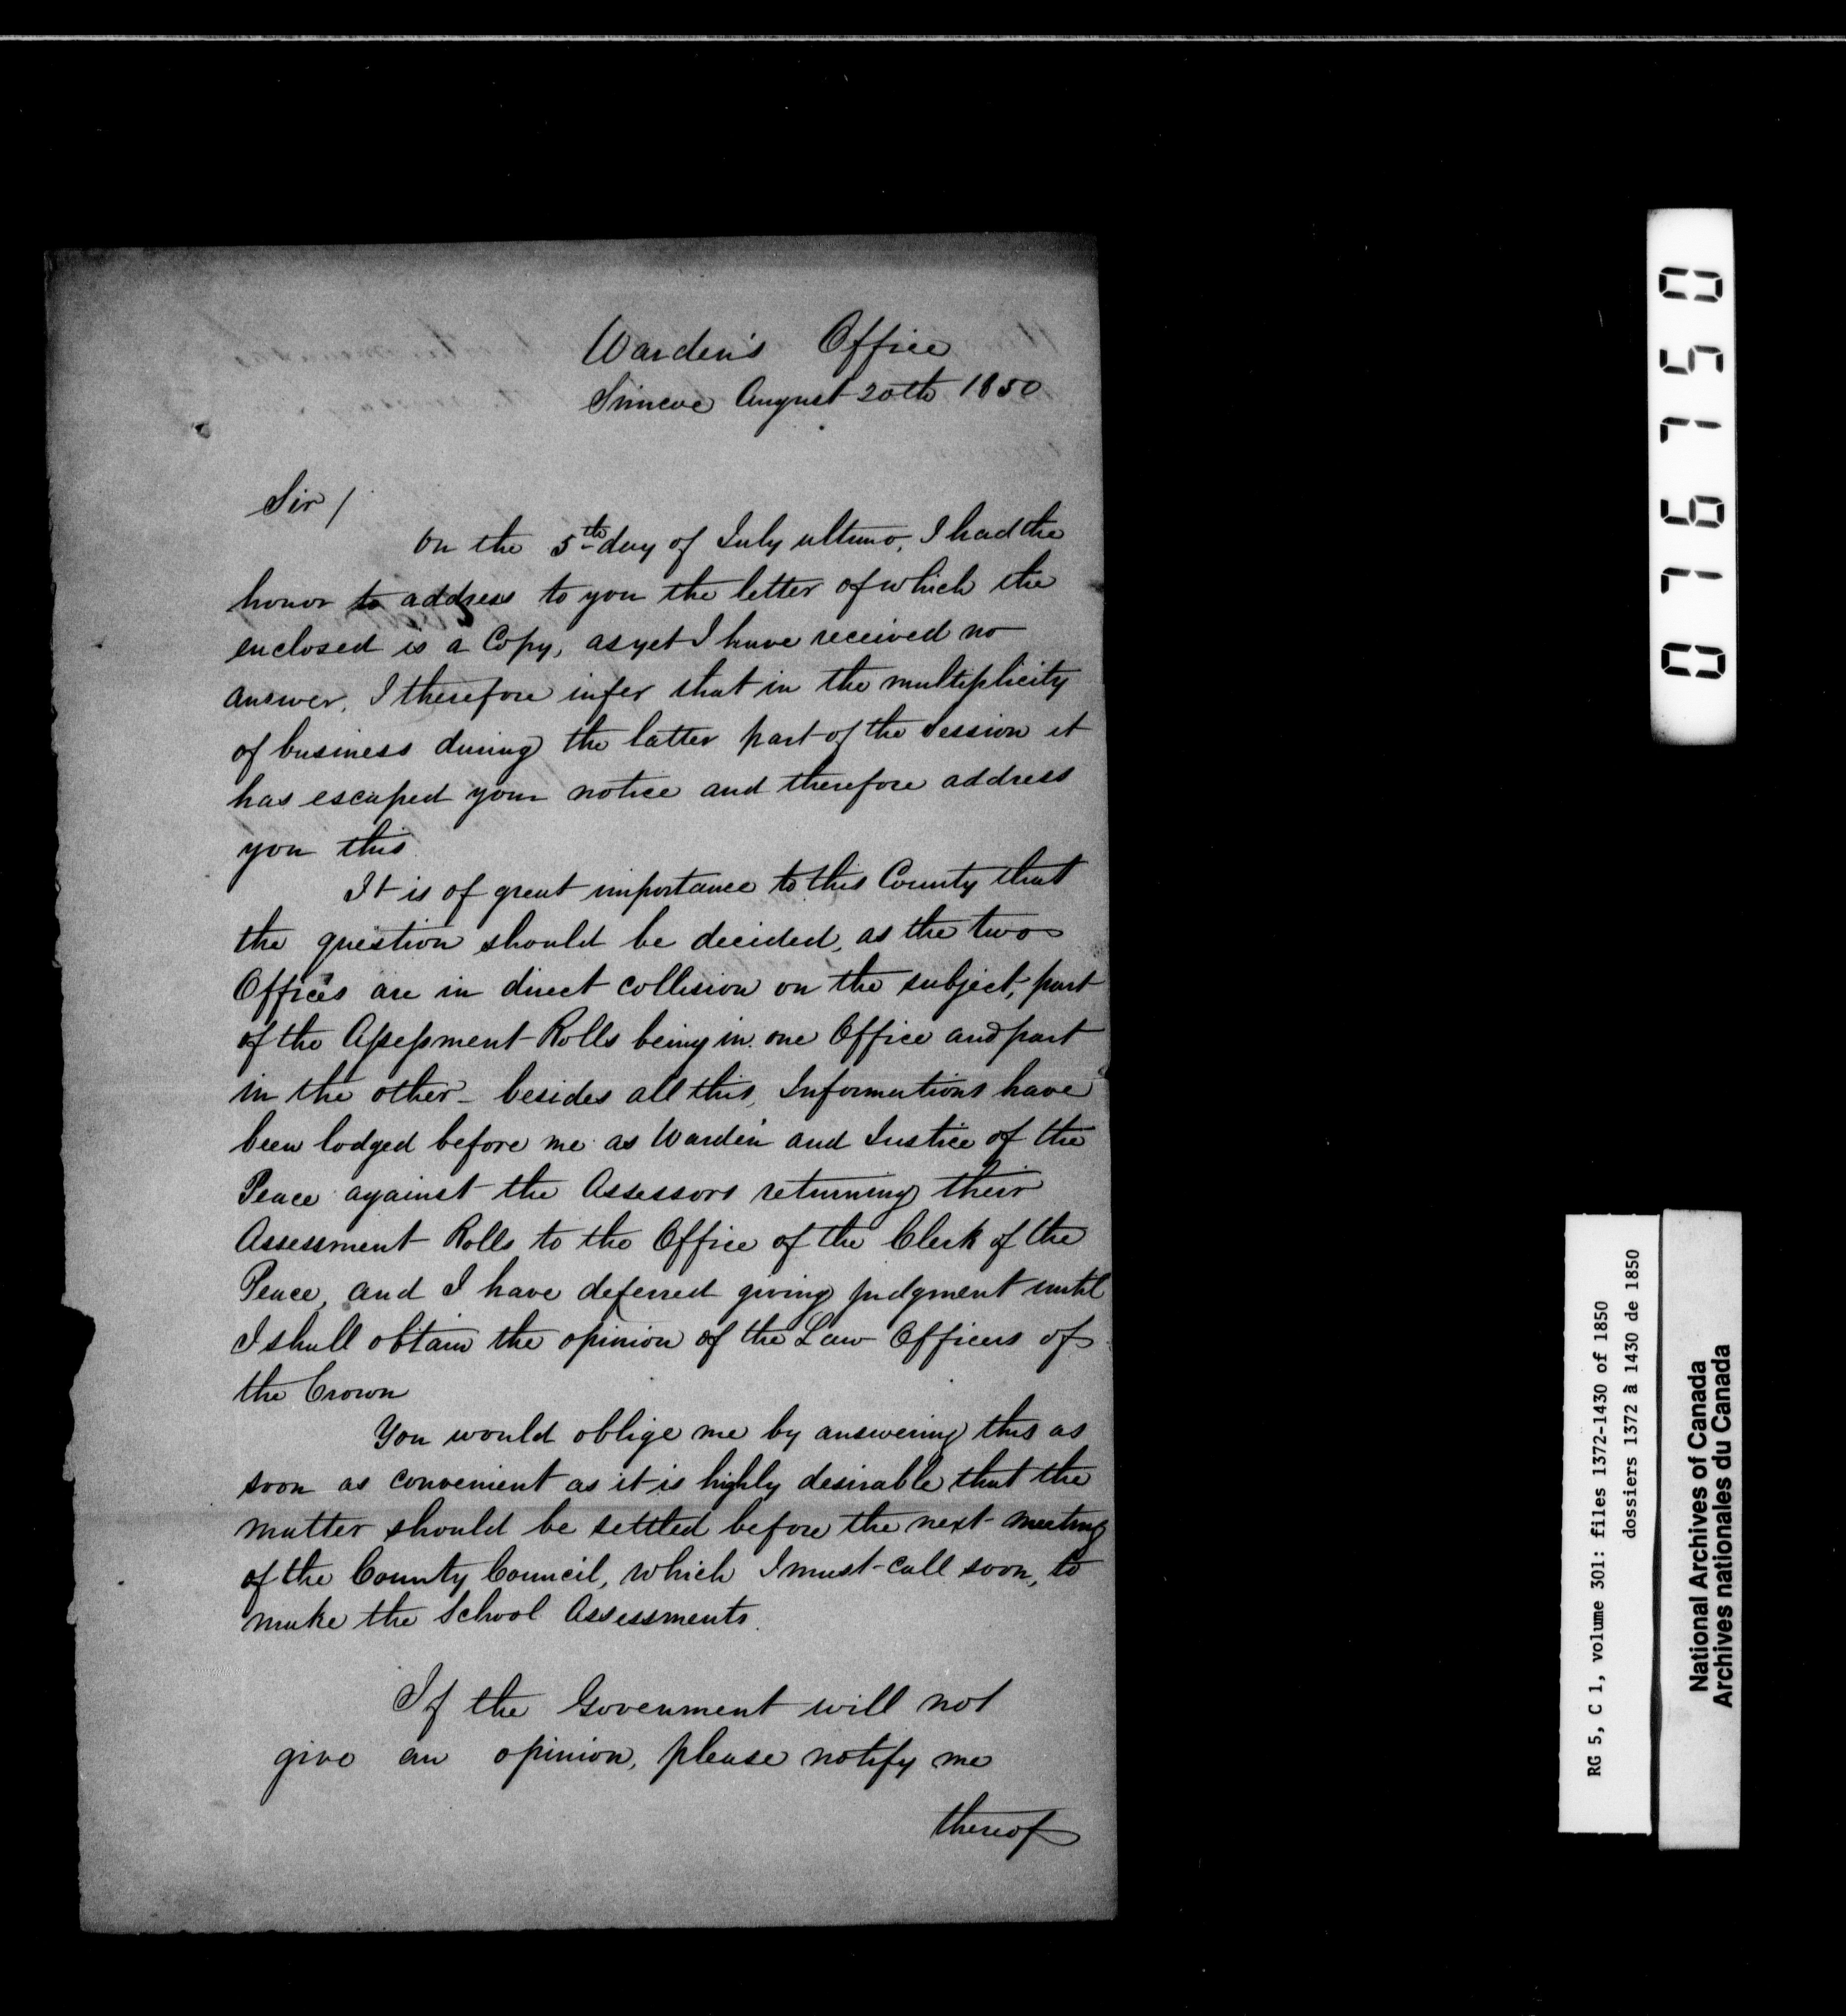 Warden's Office
Simcoe August 20th 1850
Sir /
On the 5th day of July ultimo, I had the
honor to address to you the letter of which the
enclosed is a Copy, as yet I have received no
answer. I therefore infer that in the multiplicity
of business during the latter part of the Session it
has escaped your notice and therefore address
you this
It is of great importance to this County that
the question should be decided, as the two
Offices are in direct collision on the subject, part
of the Assessment Rolls being in one Office and part
in the other - besides all this, Informations have
been lodged before me as Warden and Justice of the
Peace against the Assessors returning their
Assessment Rolls to the Office of the Clerk of the
Peace, and I have deferred giving judgment until
I shall obtain the opinion of the Law Officers of
the Crown
You would oblige me by answering this as
soon as convenient as it is highly desirable that the
matter should be settled before the next meeting
of the County Council, which I must call soon, to
make the School Assessments.
If the Goverment will not
give an opinion, please notify me
thereof
076750
RG 5, C 1, volume 301: files 1372-1430 of 1850
dossiers 1372 à 1430 de 1850
National Archives of Canada
Archives nationales du Canada